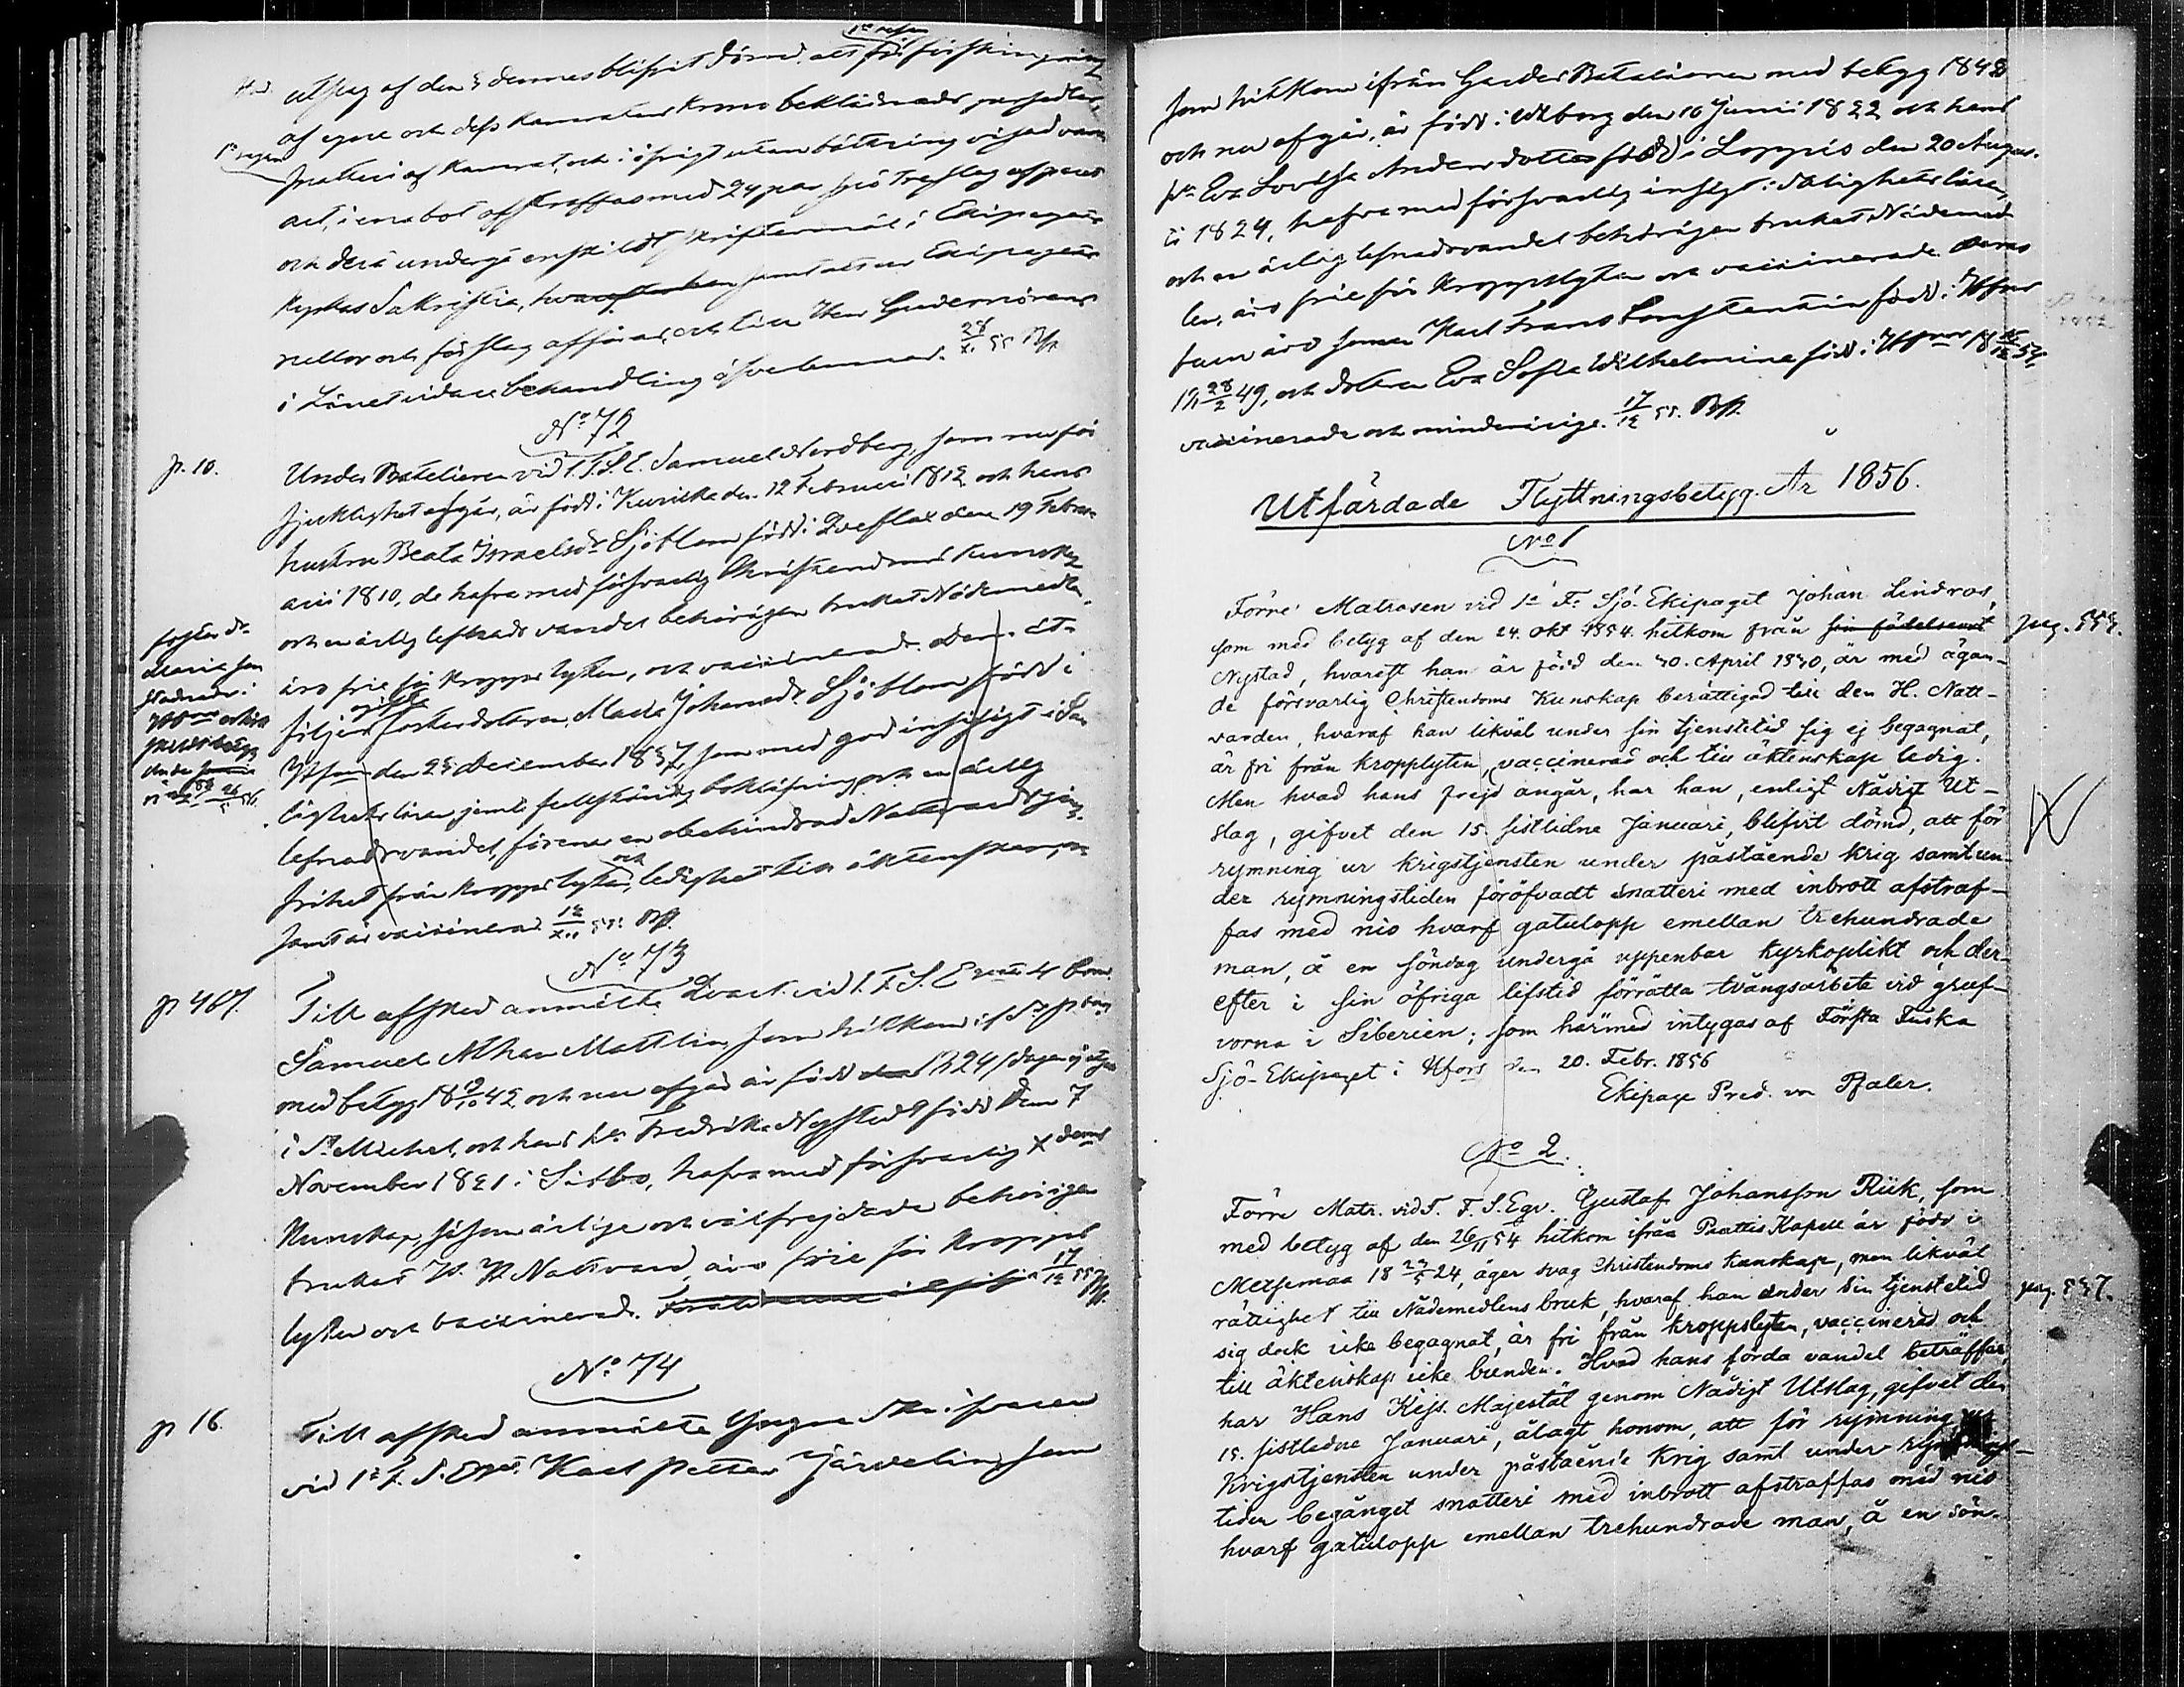 utslag af den 5 dennes blifvit dömd, att för 1a resan förskingring
af egne och dess Kamraters Krono beklädnads persedlar,
1a resan snatteri af Kamrat, och i öfrigt utan bättring vid van
art, i ena bot afstraffas med 24 par spö tre slag af paret
och derå undergå enskildt skriftermål i Ekipagets
Kyrkas Sakristia, hvarefter han samt att ur Ekipagets
rullor och förslag afföras och till Herr Guvernörens
i Länet vidare behandling öfverlemnas. 28/XI 55 Pfr
No 72
p. 10.
Under Bateliören vid 1. F. S. E. Samuel Nordberg, som nu för
sjuklighet afgår, är född i Kuvika den 12 Februari 1812 och hans
hustru Beata Israelsdr Sjöblom född i Qveflax den 19 Febru-
arii 1810, de hafva med försvarlig Christendoms kunskap
och en ärlig lefnads vandel behörigen brukat Nådemedlen,
äro frie för kropps lyten, och vaccinerade. Dem åt-
följer fosterdottren Maria Johansdr Sjöblom född i
Hfors den 25 December 1837, som med god insigt i Sa-
lighets läran jemte fullständig bokläsning och en ärlig
lefnadsvandel, förenar en obehindrad Nattvardsgång,
frihet från kropps lyten, och ledighet till äktenskap, och
samt är vaccinerad 12/XII 55. Pfr.
fosterdr
Maria
No 73
p 467.
Till afsked anmälte Qvart. vid 1. F. S. E 4 Com.
Samuel Athan Mattlin, som hitkom if St P. borg
med betyg 18 9/10 42 och nu afgår är född den 1824 / dagen ej
i St Michel, och hans h. Fredrika Nystedt född den 7
November 1821 i Sibbo, hafva med försvarlig X doms
Kunskap, såsom ärlige och välfrejdade behörigen
brukat H. H. Nattvard, äro frie för kropps
lyten och vaccinerade. 17/12 55 Pfr.
No 74
p 16.
Till afsked anmälte Yngre Skrifvaren
vid 1a F. S. Eqt. Karl Petter Järvelin, som
som hitkom ifrån Gardes Bataillonen med betyg 1842
och nu afgår, är född i Wiborg den 10 Junii 1822 och hans
h. Eva Lovisa Andersdotter född i Loppis den 20 Augus-
ti 1824, hafva med försvarlig insigt i Salighetsläran,
och en ärlig lefnadsvandel behörigen brukat Nådemed-
len, äro frie för kroppslyten och vaccinerade. Deras
barn äro sonen Karl Frans Constantin född i Hfors
18 28/2 49, och dottren Eva Sofia Wilhelmina född i Hfors 18 16/12 54.
vaccinerade och minderårige. 17/12 55. Pfr.
Utfärdade Flyttningsbetyg. År 1856.
No 1
Förre Matrosen vid 1a F. Sjö-Ekipaget Johan Lindros,
som med betyg af den 24. Okt 1854. hitkom från sin födelseort
Nystad, hvarest han är född den 30. April 1830, är med ägan-
de försvarlig Christendoms Kunskap berättigad till den H. Natt-
varden, hvaraf han likväl under sin tjenstetid sig ej begagnat,
är fri från kropplyten, vaccinerad och till äktenskap ledig.
Men hvad hans frejd angår, har han, enligt Nådigt Ut-
slag, gifvet den 15. sistlidne Januari, blifvit dömd, att för
rymning ur krigstjensten under påstående krig samt un-
der rymningstiden föröfvadt snatteri med inbrott afstraf-
fas med nio hvarf gatulopp emellan trehundrade
man, å en söndag undergå uppenbar kyrkoplikt och der-
efter i sin öfriga lifstid förrätta tvångsarbete vid gruf-
vorna i Siberien; som härmed intygas af Första Finska
Sjö-Ekipaget i Hfors den 20. Febr. 1856
Ekipage Pred. von Pfaler.
pag. 555.
No 2.
Förre Matr. vid 1. F. S. Eqv. Gustaf Johansson Riik, som
med betyg af den 26/11 54 hitkom ifrån Paattis Kapell är född i
Metsemaa 18 23/5 24, äger svag Christendoms kunskap, men likväl
rättighet till Nådemedlens bruk, hvaraf han under sin tjenstetid
sig dock icke begagnat, är fri från kroppslyten, vaccinerad och
till äktenskap icke bunden. Hvad hans förda vandel beträffar,
har Hans Kejs. Majestät genom Nådigt Utslag, gifvet den
15. sistledne Januari, ålagt honom, att för rymning ur
Krigstjensten under påstående Krig samt under rymnings-
tiden begånget snatteri med inbrott afstraffas med nio
hvarf gatulopp emellan trehundrade man, å en sön-
pag. 557.